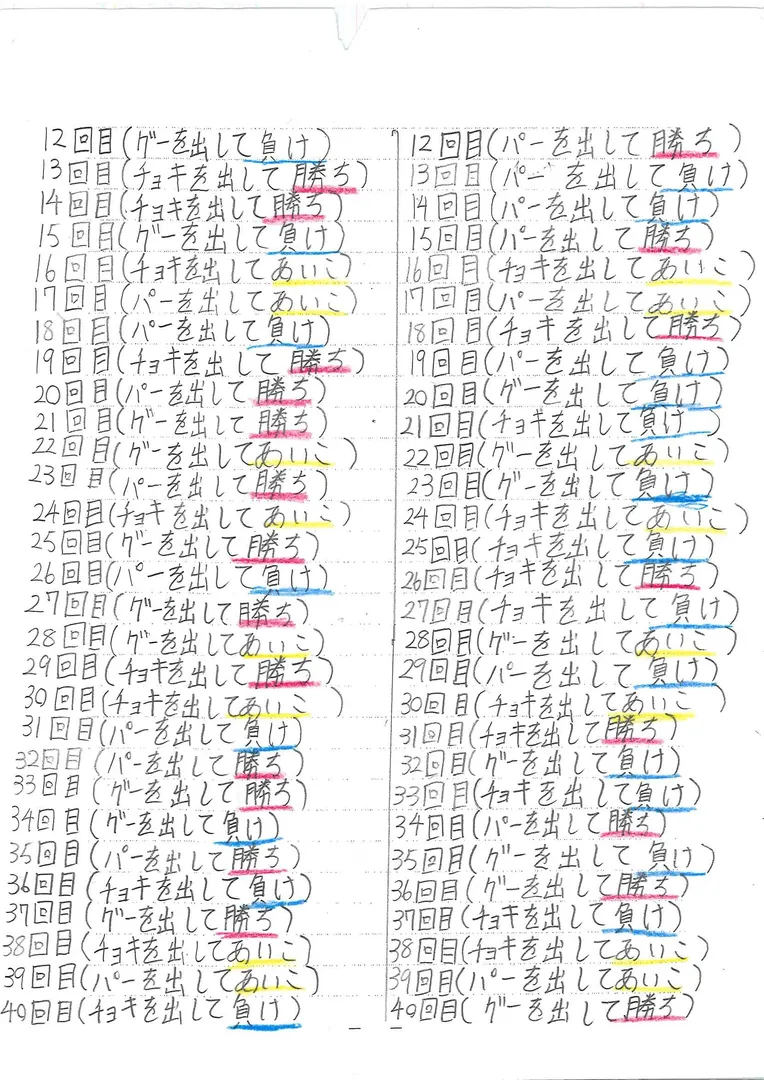 12回目(グーを出して負け)
13回目(チョキを出して勝ち)
14回目(チョキを出して勝ち)
15回目(グーを出して負け)
16回目(チョキを出してあいこ)
17回目(パーを出してあいこ)
18回目(パーを出して負け)
19回目(チョキを出して勝ち)
20回目(パーを出して勝ち)
21回目(グーを出して勝ち)
22回目(グーを出してあいこ)
23回目(パーを出して勝ち)
24回目(チョキを出してあいこ)
25回目(グーを出して勝ち)
26回目(パーを出して負け)
27回目(グーを出して勝ち)
28回目(グーを出してあいこ)
29回目(チョキを出して勝ち)
30回目(チョキを出してあいこ)
31回目(パーを出して負け)
32回目(パーを出して勝ち)
33回目(グーを出して勝ち)
34回目(グーを出して負け)
35回目(パーを出して勝ち)
36回目(チョキを出して負け)
37回目(グーを出して勝ち)
38回目(チョキを出してあいこ)
39回目(パーを出してあいこ)
40回目(チョキを出して負け)
12回目(パーを出して勝ち)
13回目(パーを出して負け)
14回目(パーを出して負け)
15回目(パーを出して勝ち)
16回目(チョキを出してあいこ)
17回目(パーを出してあいこ)
18回目(チョキを出して勝ち)
19回目(パーを出して負け)
20回目(グーを出して負け)
21回目(チョキを出して負け)
22回目(グーを出してあいこ)
23回目(グーを出して負け)
24回目(チョキを出してあいこ)
25回目(チョキを出して負け)
26回目(チョキを出して勝ち)
27回目(チョキを出して負け)
28回目(グーを出してあいこ)
29回目(パーを出して負け)
30回目(チョキを出してあいこ)
31回目(チョキを出して勝ち)
32回目(グーを出して負け)
33回目(チョキを出して負け)
34回目(パーを出して勝ち)
35回目(グーを出して負け)
36回目(グーを出して勝ち)
37回目(チョキを出して負け)
38回目(チョキを出してあいこ)
39回目(パーを出してあいこ)
40回目(グーを出して勝ち)